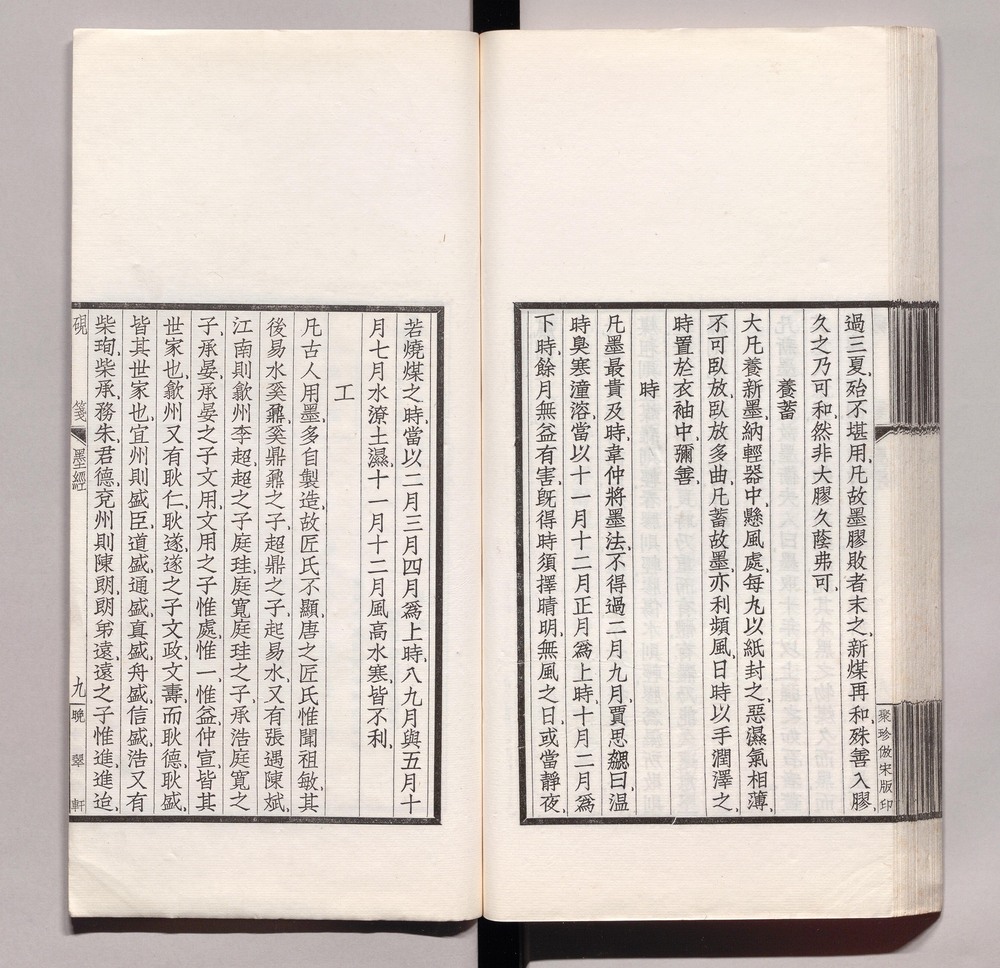 過三夏、殆不堪用、凡故墨膠敗者末之、新煤再和、殊善入膠、
久之乃可和、然非大膠久蔭弗可、
養蓄
大凡養新墨納輕器中、懸風處、每丸以紙封之、惡濕氣相薄、
不可臥放、臥放多曲、凡蓄故墨、亦利頻風日時以手潤澤之
時置於衣袖中、彌善、
時
凡墨最貴及時、韋仲將墨法、不得過二月九月、賈思勰曰、温
時臭寒潼溶、當以十一月十二月正月爲上時、十月二月爲
下時、餘月無益有害、旣得時須擇晴明、無風之日、或當靜夜、
聚珍倣宋版印
若燒煤之時、當以二月三月四月爲上時、八九月與五月十
月七月水潦土濕、十一月十二月風高水寒皆不利、
工
凡古人用墨、多自製造、故匠氏不顯、唐之匠氏、惟聞祖敏、其
後易水奚鼐、奚鼎、鼐之子超、鼎之子起、易水、又有張遇陳斌、
江南則歙州李超、超之子庭珪、庭寬、庭珪之子、承浩、庭寬之
子、承晏、承晏之子文用、文用之子惟處、惟一、惟益、仲宣、皆其
世家也、歙州又有耿仁、耿遂、遂之子文政、文壽、而耿德、耿盛、
皆其世家也、宣州則盛匡道、盛通、盛真、盛舟、盛信、盛浩、又有
柴珣、柴承務、朱君德、兗州則陳朗、朗弟遠、遠之子惟進、惟迨、
硯 箋 墨經 九 晚翠軒